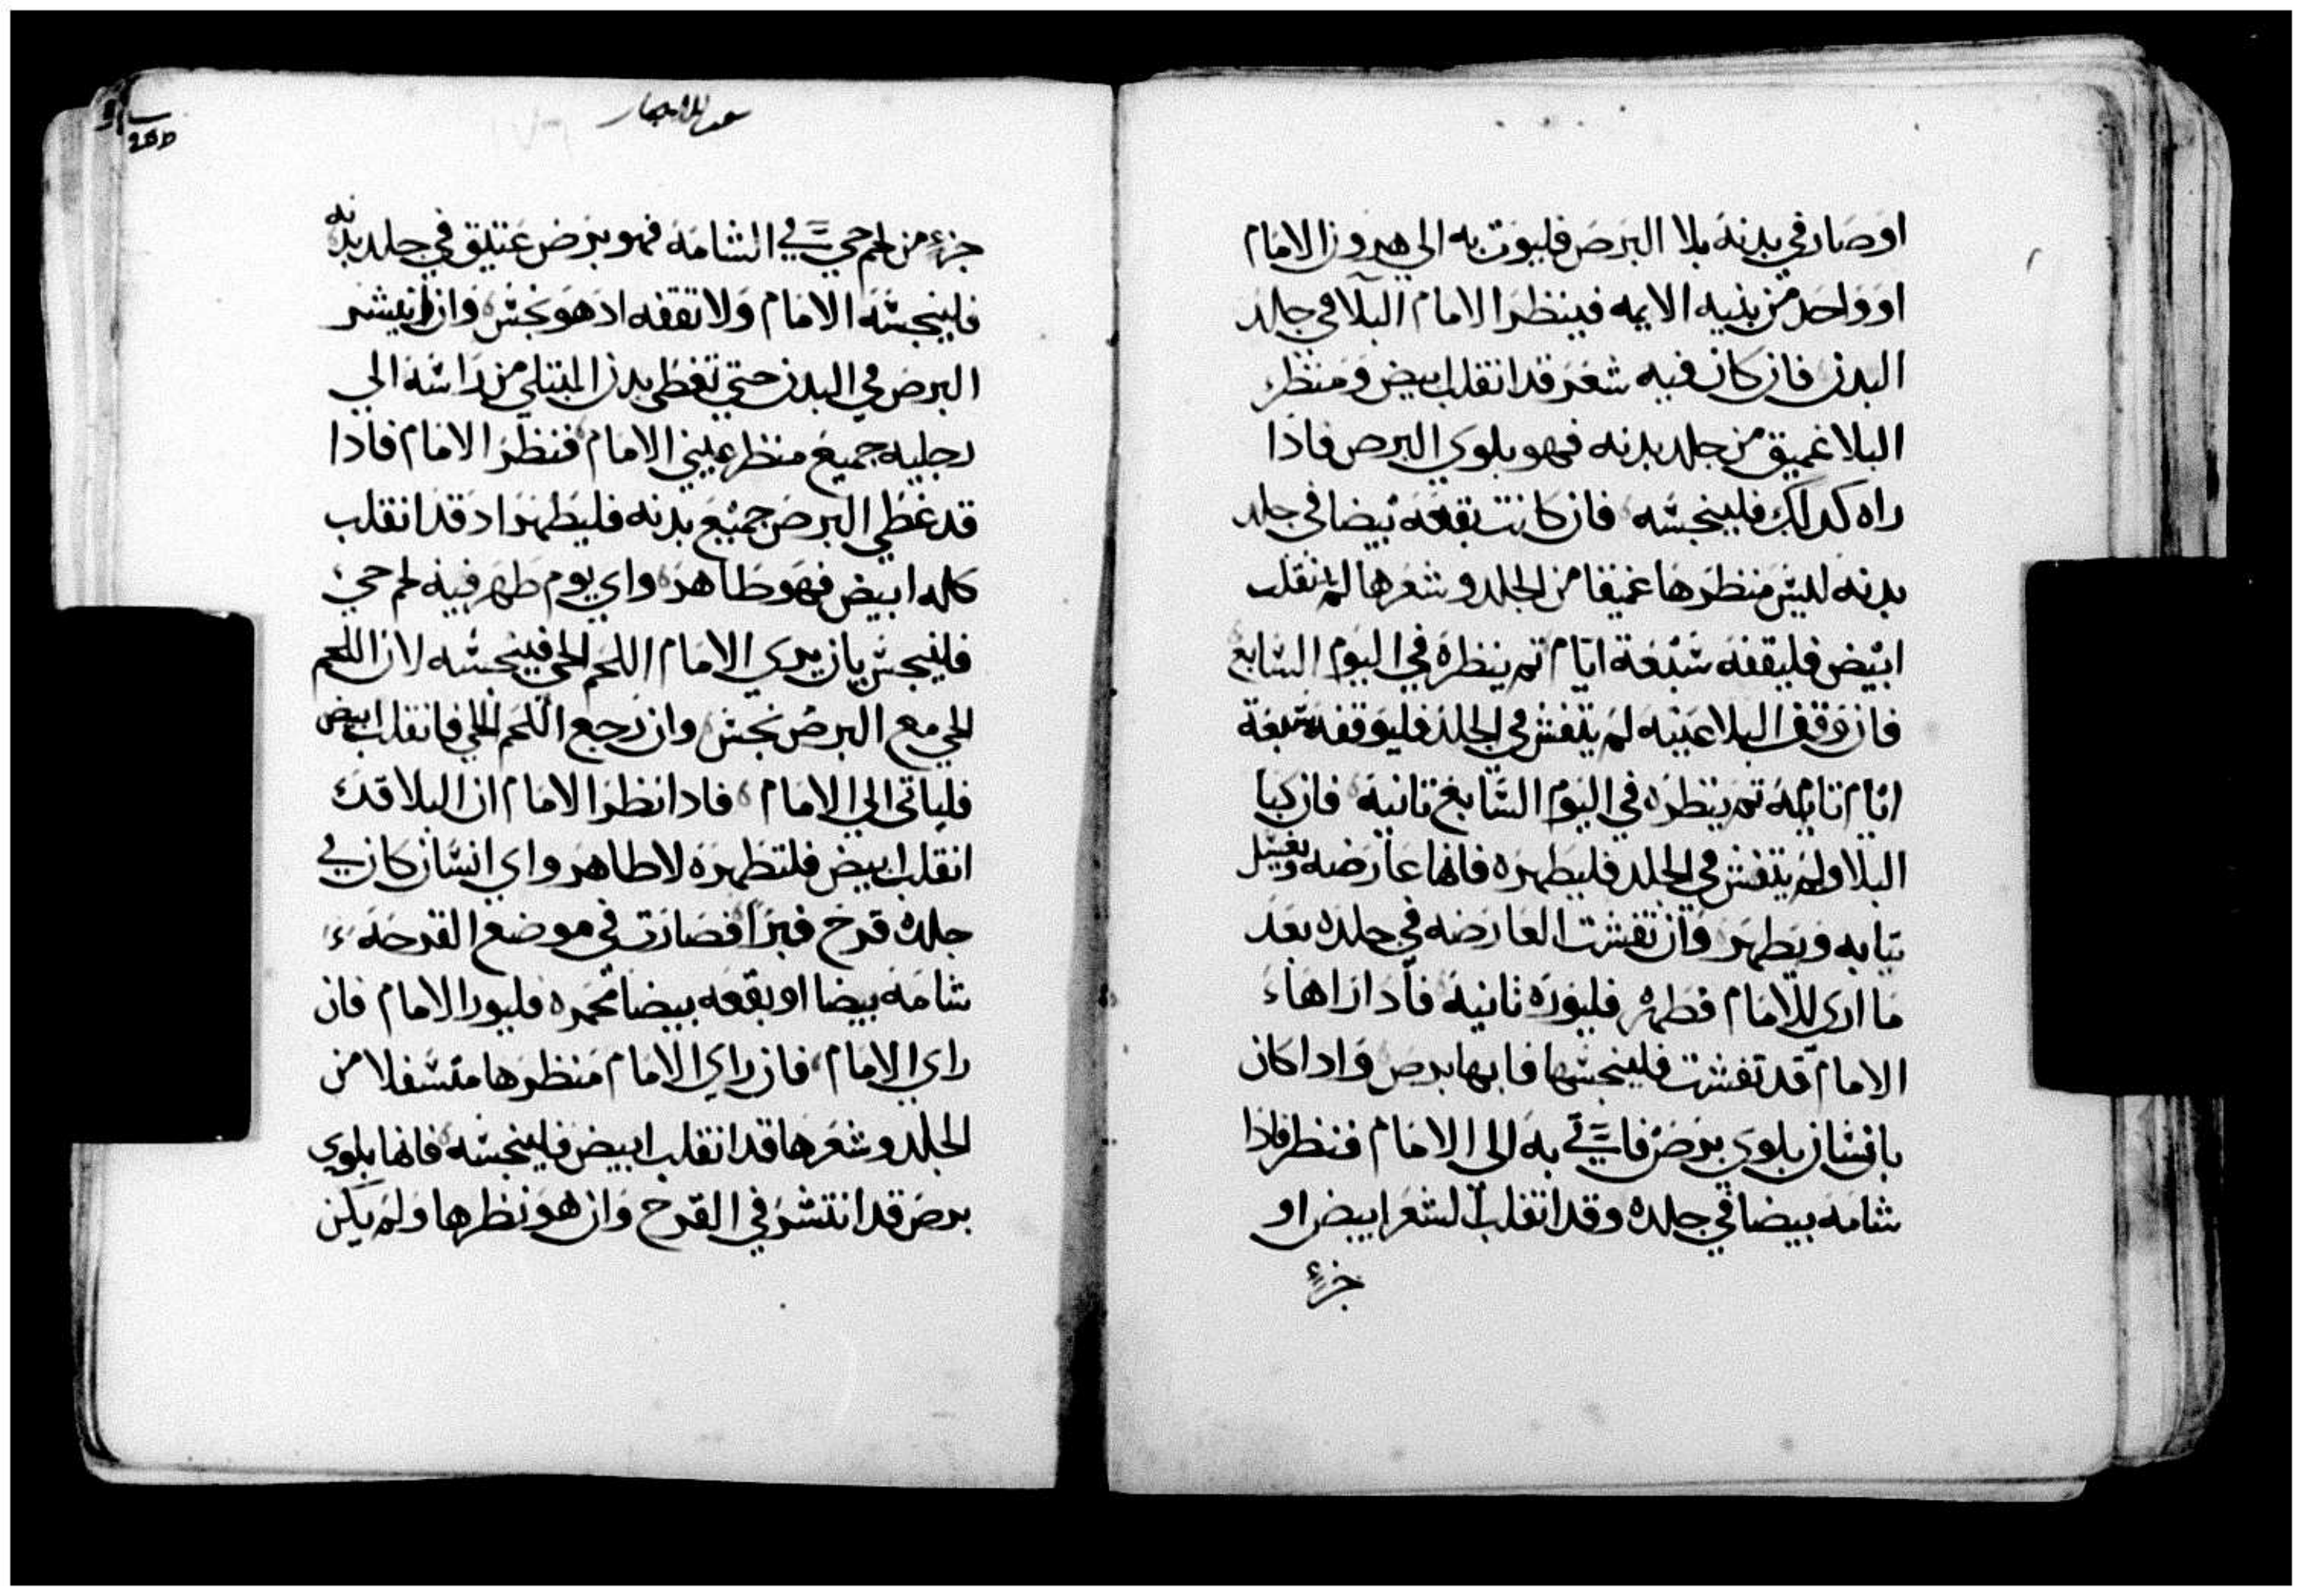 اوصار في بدنه بلا البرص فليوت به الي هرون الامام
او واحد من بنيه الايمه فينظر الامام البلا في جلد
البدن فان كان فيه شعر قد انقلب ابيض ومنظر
البلا غميق من جلد بدنه فهو بلوي البرص فاذا
راه كدلك فلينجسه فان كانت بقعه بيضا في جلد
بدنه ليس منظرها غميقا من الجلد وشعرها لم ينقلب
ابيض فليقفه سبعة ايام تم ينظره في اليوم السابع
فان وقف البلا عينه لم يتفش في الجلد فليوقفه سبعة
ايام تانيه تم ينظره في اليوم السابع تانية فان كبا
البلا ولم يتفش في الجلد فليطهره فانها عارضه ويغسل
تيابه ويطهر وان تفشت العارضه في جلده بعد
ما اري للامام فطهره فليوره ثانية فادا راها
الامام قد تفشت فلينجسها فانها برص وادا كان
بانسان بلوي برص فاتي به الي الامام فنظر فاذا
شامة بيضا في جلده وقد انقلب الشعر ابيض او
جزء
جزء من لحم حي في الشامه فهو برص عتيق في جلد بدنه
فلينجسه الامام ولا تقفه اد هو نجس وان انتشر
البرص في البدن حتي تغطي بدن المبتلي من راسه الي
رجليه جميع منظر عيني الامام فنظر الامام فاذا
قد غطي البرص جميع بدنه فليطهر اد قد انقلب
كله ابيض فهو طاهر واي يوم ظهر فيه لحم حي
فلينجس بان يري الامام اللحم الحي فينجسه لان اللحم
الحي مع البرص نجس وان رجع اللحم الحي فانقلب ابيض
فلياتي الي الامام فادا نظر الامام ان البلا قد
انقلب ابيض فلتطهره لاطاهر واي انسان كان في
جلده قرح فبرا فصارت في موضع القرحه
شامه بيضا او بقعه بيضا محمره فليور الامام فان
راي الامام فان راي الامام منظرها متسفلا من
الجلد وشعرها قد انقلب ابيض فلينجسه فانها بلوي
برص قد انتشر في القرح وان هو نظرها ولم يكن